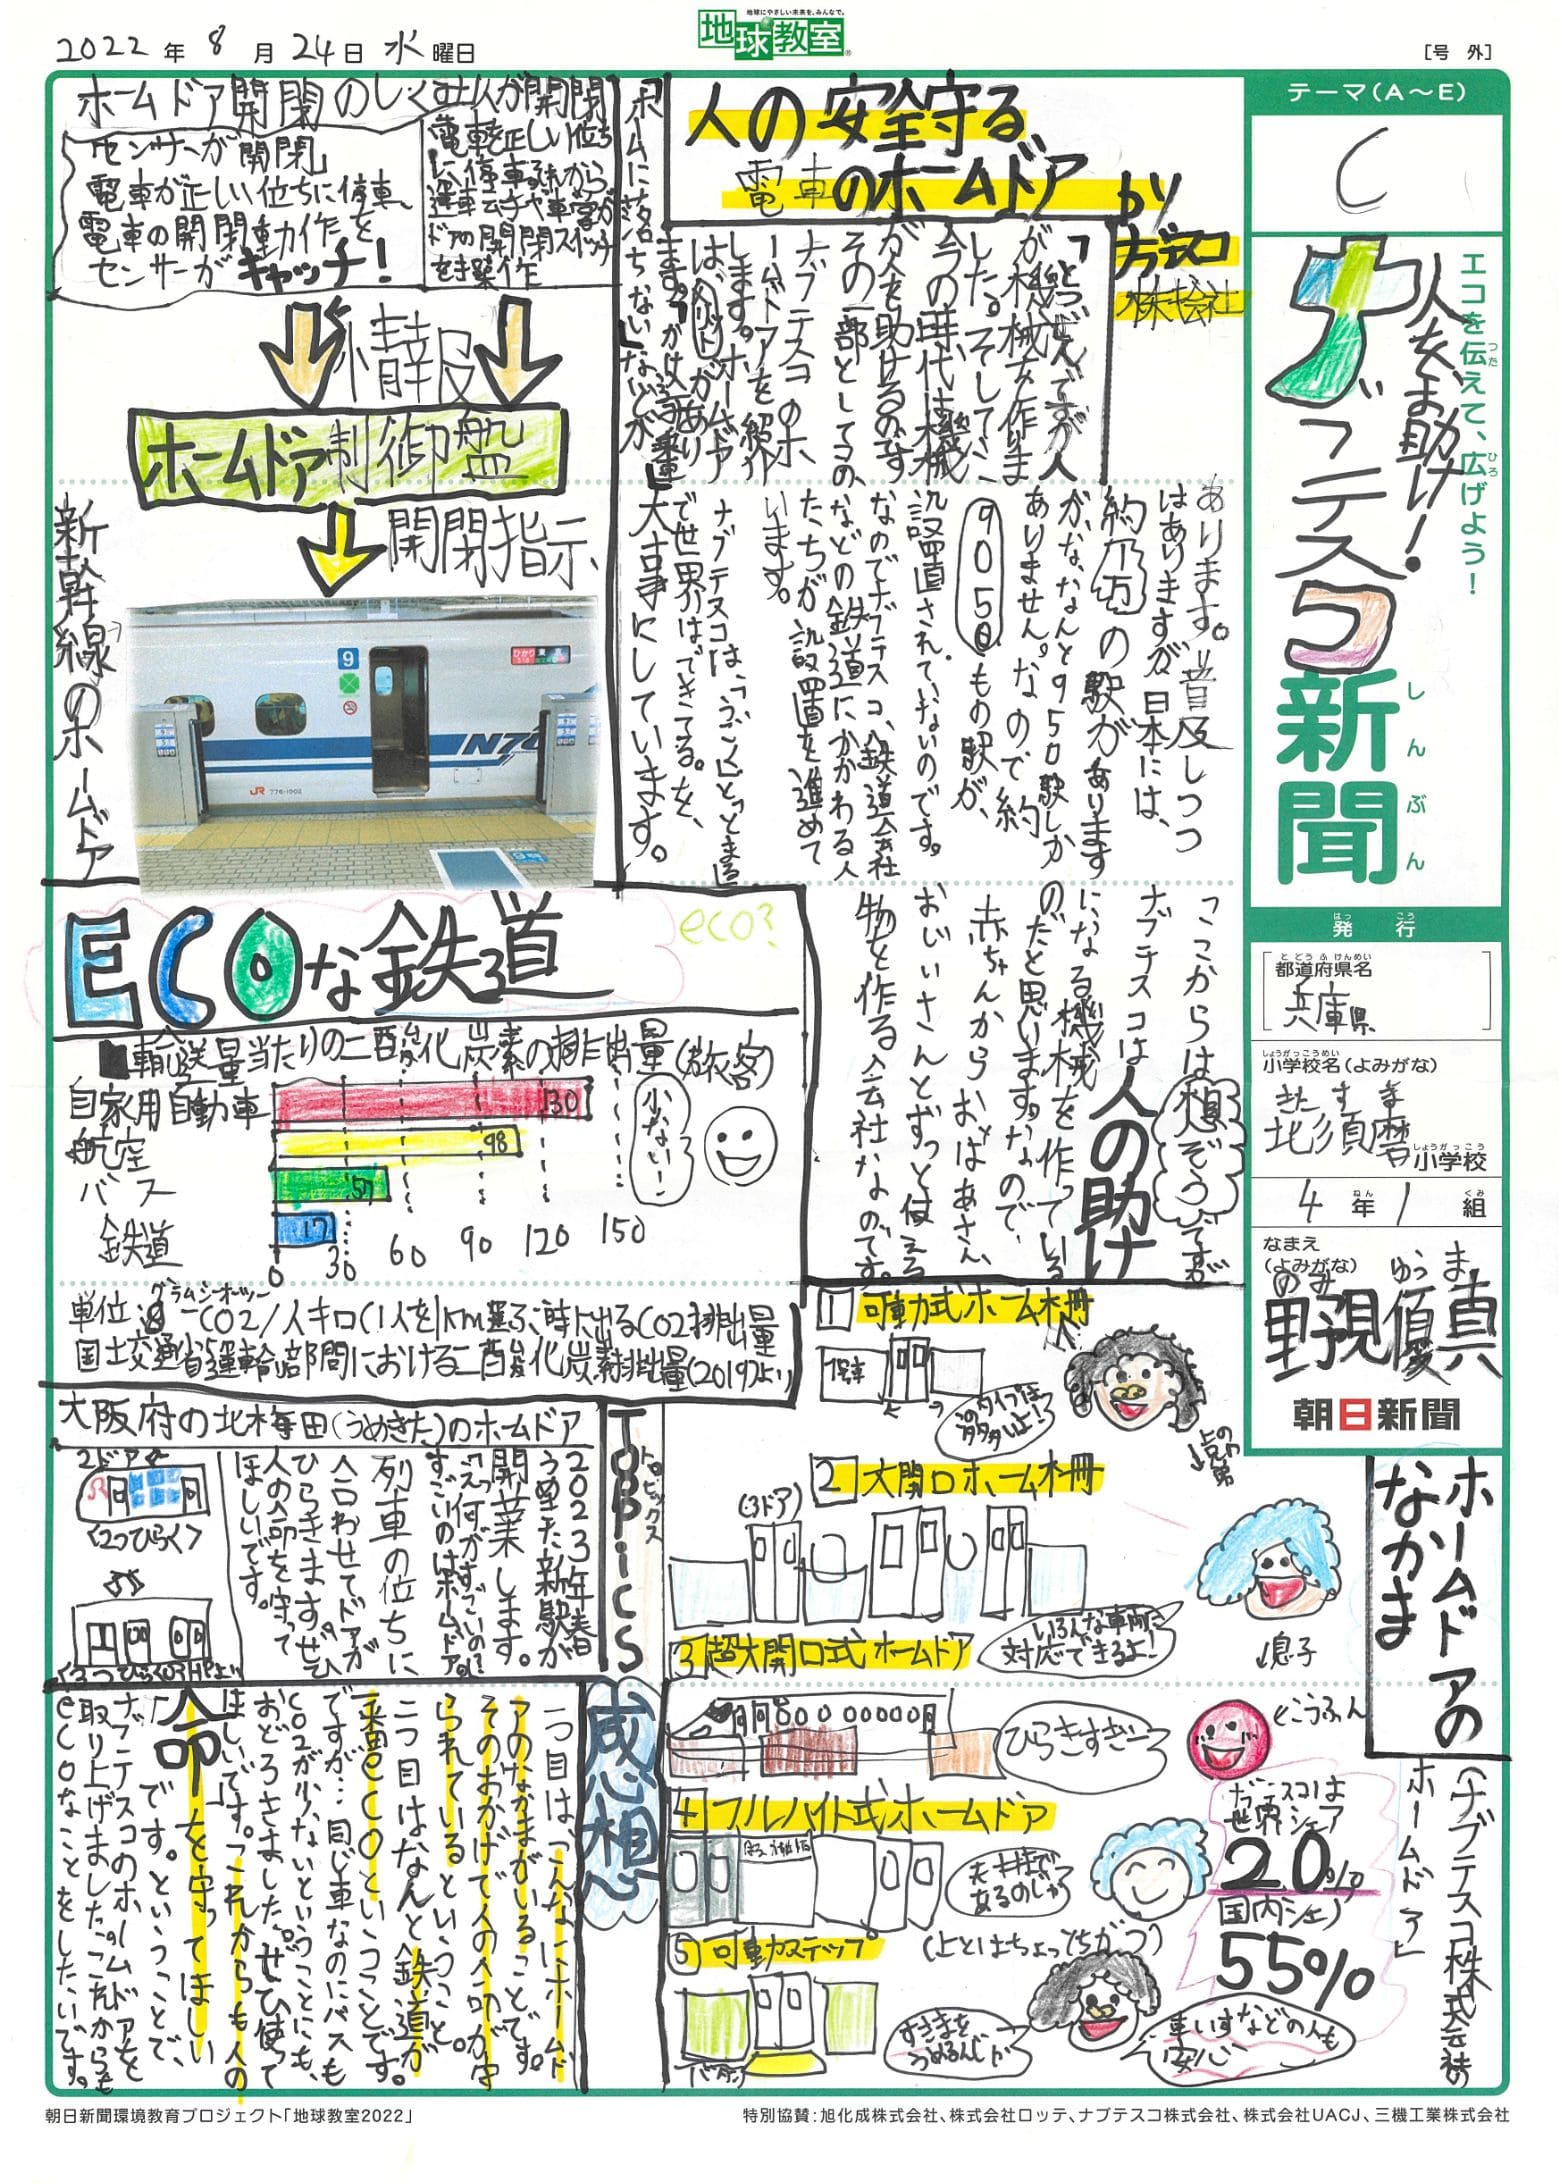 2022年8月24日水曜日
地球にやさしい未来を、みんなで。
地球教室
[号 外]
テーマ(A〜E)
C
エコを伝えて、広げよう!
つた
ひろ
人を助け!
ナブテスコ
新聞
しんぶん
発行
はっ こう
都道府県名
と どう ふ けんめい
兵庫県
小学校名(よみがな)
しょうがっこうめい
きた す ま
北須磨
小学校
しょうがっこう
4年1組
ねん
くみ
なまえ
(よみがな)
のみ ゆうま
野視優真
朝日新聞
人の安全守る
電車のホームドア
ナブテスコ
株式会社
とつぜんですが人
が機械を作りま
した。そして、
今の時代は機械
が人を助けるのです
その一部としてこの、
ナブテスコのホ
ームドアを紹介
します。ホームドア
はメリットがあり
ます。
「ホームに落
ちない」などが
あります。普及しつつ
はありますが日本には、
の駅があります
が、なんと950駅しか
ありません。なので約
9050
もの駅が、
設置されていないのです。
なのでナブテスコ、鉄道会社
などの鉄道にかかわる人
たちが設置を進めて
います。
ナブテスコは、「うごくとめる」
で世界はできてる。を、
大事にしています。
ここからは想ぞうですが
ナブテスコは人の助け
になる機械を作っている
のだと思います。なので、
赤ちゃんからおばあさん、
おじいさんとずっと使える
物を作る会社なのです。
ホームドア開閉のしくみ
「センサーが開閉」
電車が正しい位ちに停車、
電車の開閉動作を
センサーがキャッチ!
人が開閉
電車を正しい位ち
に停車。それから
運転士や車掌が
ドアの開閉スイッチ
を操作
情報
ホームドア制御盤
開閉指示
新幹線のホームドア
9
ひかり
N70
JR 776-1002
ECOな鉄道
eco?
■輸送量当たりの二酸化炭素の排出量(旅客)
自家用自動車 130
航空 98
バス 57
鉄道 17
0 30 60 90 120 150
少ないー!
グラムシーオーツー
単位:g-CO2/人キロ(1人を1km運ぶ時に出るCO2排出量
国土交通省運輸部門における二酸化炭素排出量(2019)より
大阪府の北梅田(うめきた)のホームドア
2ドア
<2つひらく>
TOPPiCS
トピックス
2023年春
うめきた新駅が
開業します。
「えっ何がすごいの!?」
すごいのはホームドア。
列車の位ちに
合わせてドアが
ひらきます。ぜひ
人の命を守って
ほしいです。
感想
一つ目は「こんなにホームド
アのなかまがいることです。
そのおかげで人の命が守
られているということ。
二つ目はなんと鉄道が
一番ecoということです。
ですが…同じ車なのにバスも
CO2が少ないということにも、
おどろきました。ぜひ使って
ほしいです。「これからも人の
命を守ってほしい
」です。ということで、
ナブテスコのホームドアを
取り上げました。これからも
ecoなことをしたいです。
ホームドアの
なかま
(ナブテスコ株式会社
ホームドア)
1 可動式ホーム柵
このタイプは
多いよ!
2 大開口ホーム柵
(3ドア)
いろんな車両に
対応できるよ!
↓息子
3 超大開口式ホームドア
ひらきすぎー
こうふん
4 フルハイト式ホームドア
天井まで
あるのじゃ
(上とはちょっとちがう)
5 可動ステップ
すきまを
うめるんじゃ
車いすなどの人も
安心
ナブテスコは
世界シェア
20%
国内シェア
55%
朝日新聞環境教育プロジェクト「地球教室2022」
特別協賛:旭化成株式会社、株式会社ロッテ、ナブテスコ株式会社、株式会社UACJ、三機工業株式会社